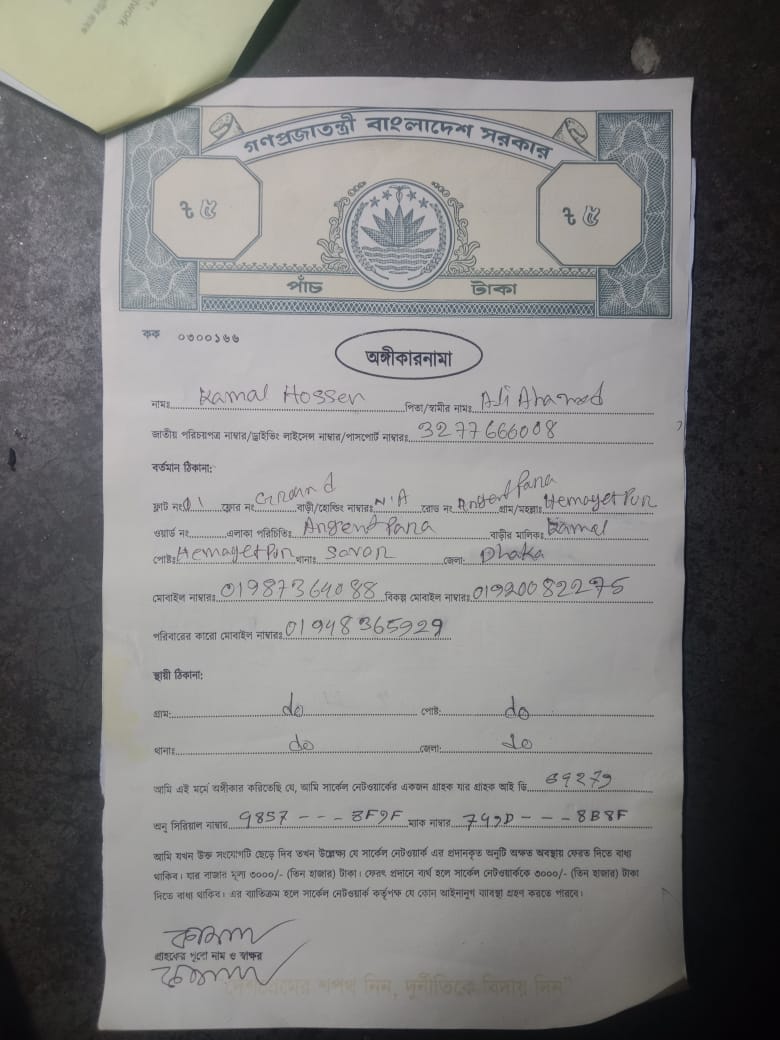 গণপ্রজাতন্ত্রী বাংলাদেশ সরকার
৳ ৫ ৳ ৫
পাঁচ টাকা
কক ০৩০০১৬৬
অঙ্গীকারনামা
নামঃ Kamal Hossen পিতা/স্বামীর নামঃ Ali Ahamed
জাতীয় পরিচয়পত্র নাম্বার/ড্রাইভিং লাইসেন্স নাম্বার/পাসপোর্ট নাম্বারঃ 3277666008
বর্তমান ঠিকানা:
ফ্লাট নং 01 ফ্লোর নং Ground বাড়ী/হোল্ডিং নাম্বারঃ N/A রোড নং গ্রাম/মহল্লাঃ HemayetPur
ওয়ার্ড নং এলাকা পরিচিতিঃ বাড়ীর মালিকঃ Kamal
পোষ্টঃ HemayetPur থানাঃ Savar জেলা: Dhaka
মোবাইল নাম্বারঃ 01987364088 বিকল্প মোবাইল নাম্বারঃ 01920082275
পরিবারের কারো মোবাইল নাম্বারঃ 01948365929
স্থায়ী ঠিকানা:
গ্রাম: do পোষ্ট: do
থানাঃ do জেলা: do
আমি এই মর্মে অঙ্গীকার করিতেছি যে, আমি সার্কেল নেটওয়ার্কের একজন গ্রাহক যার গ্রাহক আই ডি 69279
অনু সিরিয়াল নাম্বার 9857 --- 3F9F ম্যাক নাম্বার 749D --- 8B8F
আমি যখন উক্ত সংযোগটি ছেড়ে দিব তখন উল্লেক্ষ্য যে সার্কেল নেটওয়ার্ক এর প্রদানকৃত অনুটি অক্ষত অবস্থায় ফেরত দিতে বাধ্য
থাকিব। যার বাজার মূল্য ৩০০০/- (তিন হাজার) টাকা। ফেরৎ প্রদানে ব্যর্থ হলে সার্কেল নেটওয়ার্ককে ৩০০০/- (তিন হাজার) টাকা
দিতে বাধ্য থাকিব। এর ব্যতিক্রম হলে সার্কেল নেটওয়ার্ক কর্তৃপক্ষ যে কোন আইনানুগ ব্যবস্থা গ্রহণ করতে পারবে।
কামাল
গ্রাহকের পুরো নাম ও স্বাক্ষর
কামাল
"দেশপ্রেমের শপথ নিন, দুর্নীতিকে বিদায় দিন"